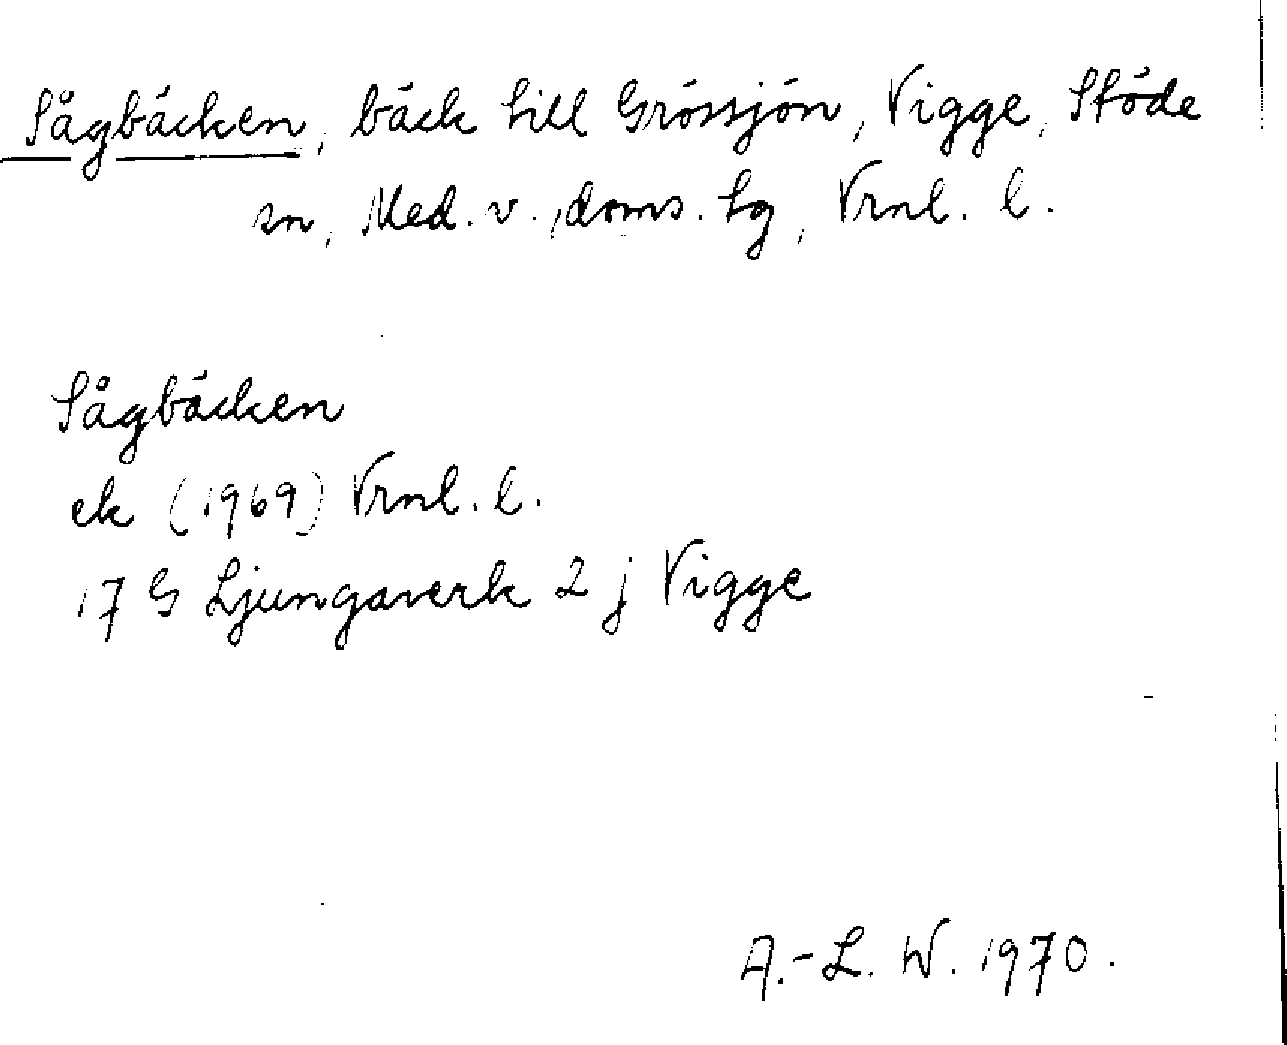 Sågbäcken, bäck till Grössjön, Vigge, Stöde
sn, Med. v. doms. tg, Vrnl. l.
Sågbäcken
ek (1969) Vrnl. l.
17 G Ljungaverk 2 j Vigge
A.-L. W. 1970.